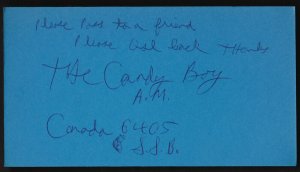 Please Pass to a friend
Please QSL back Thanks
The Candy Boy
A.M.
Canada 6405
S.S.B.